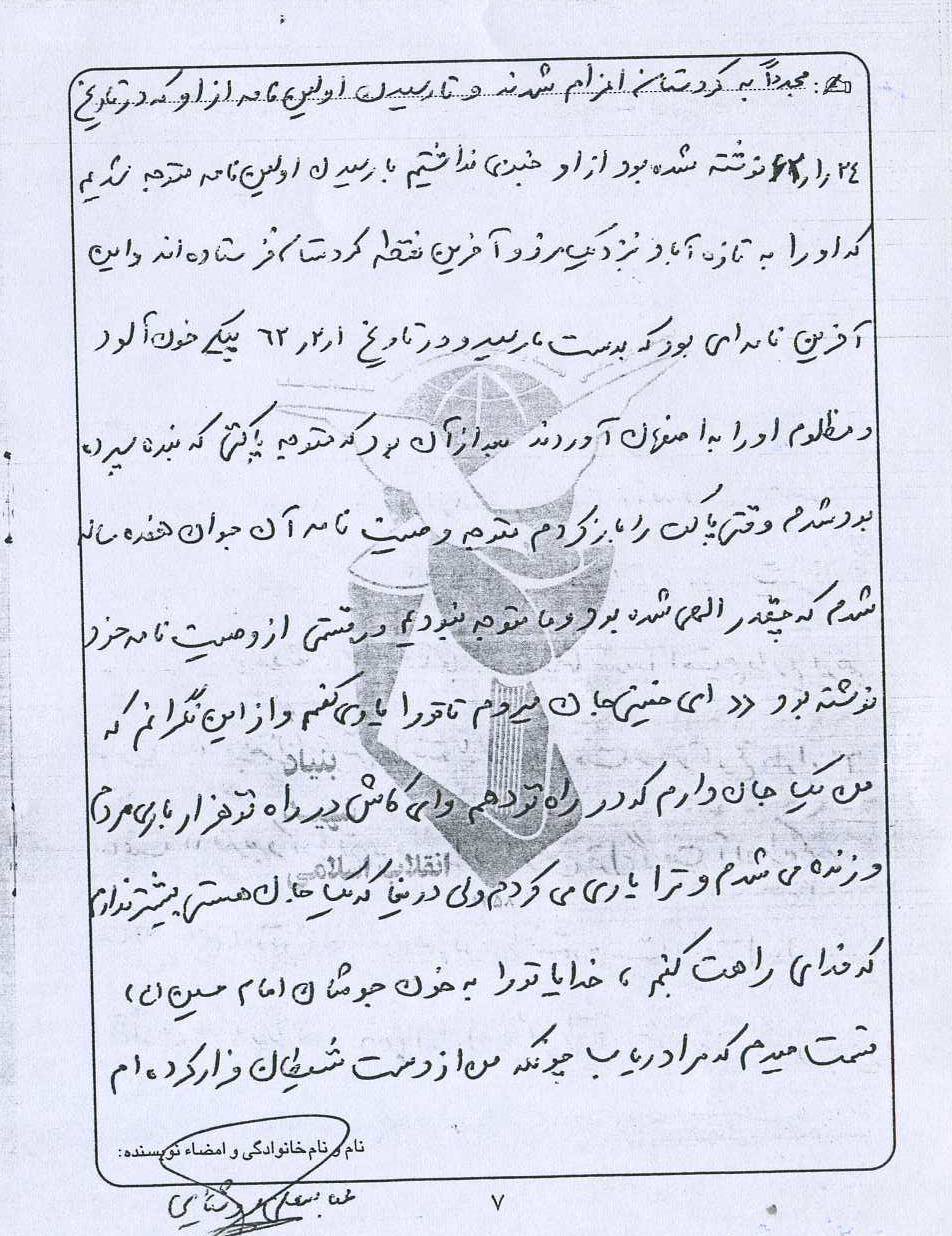 مجدداً به کردستان اعزام شدند و تا رسیدن اولین نامه از او که در تاریخ
۲۴ ر۱ر ۶۲ نوشته شده بود از او خبری نداشتیم با رسیدن اولین نامه متوجه شدیم
که او را به تازه آباد نزدیک مرز و آخرین نقطه کردستان فرستاده اند و این
آخرین نامه ای بود که بدست ما رسید و در تاریخ ۱ر۲ر ۶۲ پیکر خون آلود
و مظلوم او را به اصفهان آوردند بعد از آن بود که متوجه پاکتی که بنده سپرده
بود شدم وقتی پاکت را باز کردم متوجه وصیت نامه آن جوان هفده ساله
شدم که چقدر الهی شده بود و ما متوجه نبودیم در قسمتی از وصیت نامه خود
نوشته بود (( ای خمینی جان میروم تا تو را یاری کنم و از این نگرانم که
من یک جان دارم که در راه تو دهم و ای کاش در راه تو هزار بار می مردم
و زنده می شدم و ترا یاری می کردم ولی دریغا که یک جان هستی بیشتر ندارم
که فدای راهت کنم ، خدایا تو را به خون جوشان امام حسین (ع)
قسمت میدم که مرا دریاب چونکه من از دست شیطان فرار کرده ام
بنیاد
انقلاب اسلامی
نام و نام خانوادگی و امضاء نویسنده:
۷